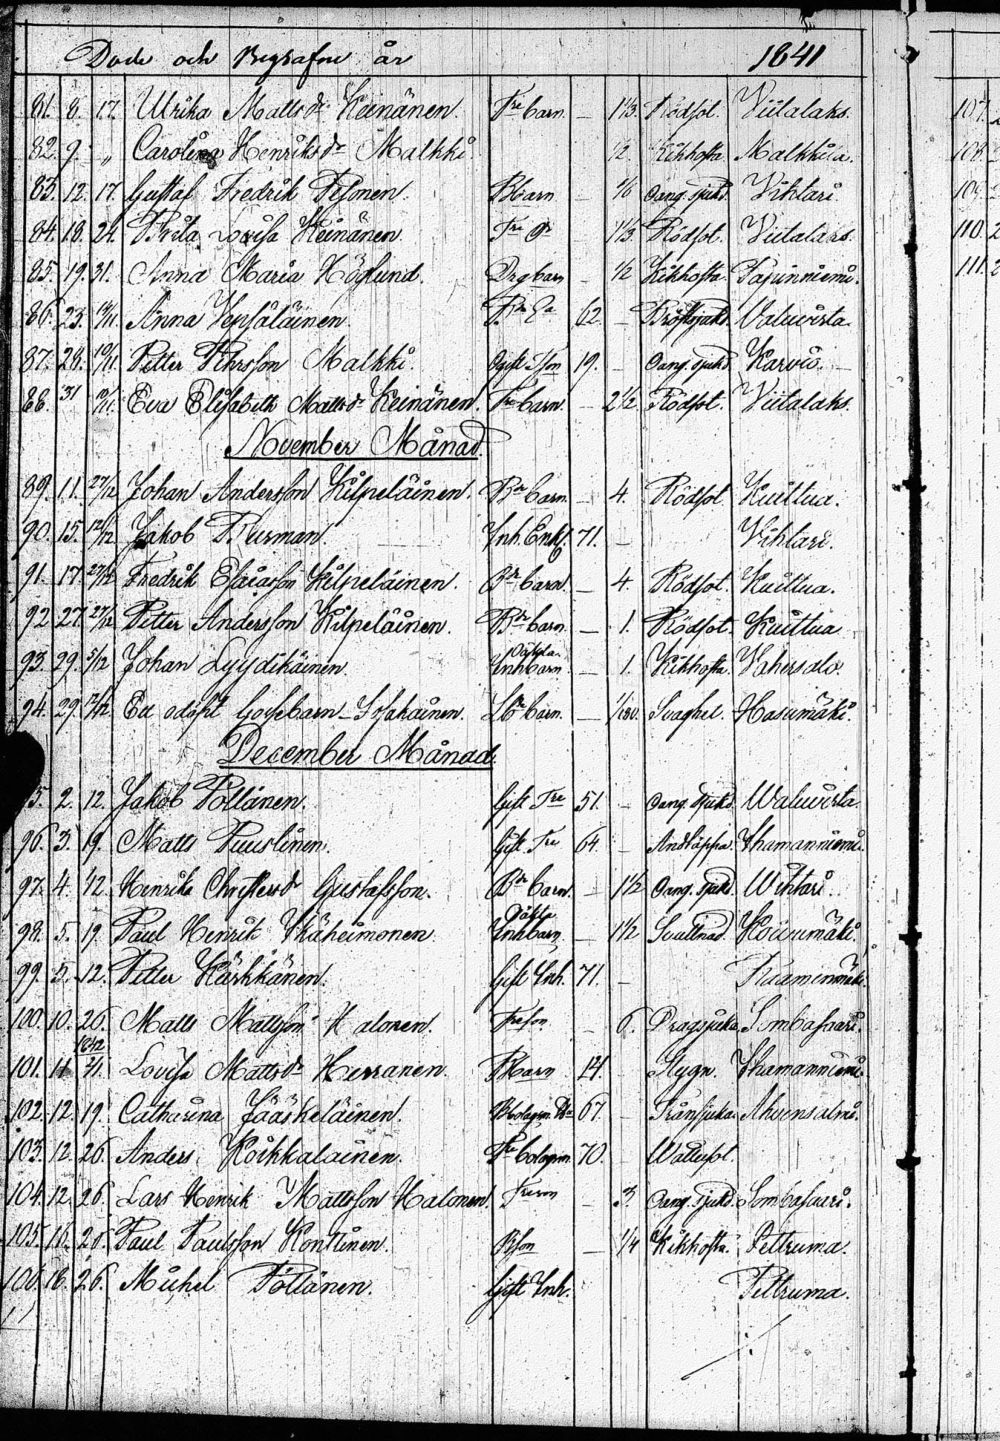 Döde och Begrafne år 1841
81. 8. 17. Ulrika Mattsdr Keinänen. Fre barn — 1 1/3. Rödsot. Viitalaks. 107.
82. 9. „ Carolina Henriksdr Malkki 1/2 Kikhosta Malkkila. 108.
83. 12. 17. Gustaf Fredrik Pesonen. Bbarn 1/6 Oang. sjukd. Vihtari. 109.
84. 18. 24. Brita Lovisa Keinänen Fre Dr 1 1/3. Rödsot. Viitalaks. 110. 2
85. 19. 31. Anna Maria Höglund. Drgbarn — 1/2 Kikhosta. Papinniemi. 111. 2
86. 23. 14/11. Anna Vepsäläinen. 62. — Bröstsjukd. Valuvirta.
87. 28. 14/11. Petter Pehrsson Malkki. Ogift Son 19. — Oang. sjukd. Karvio. —
88. 31 14/11. Eva Elisabeth Mattsdr Keinänen. Fre barn. — 2 1/2 Rödsot. Viitalaks.
November Månad.
89. 11. 27/12 Johan Andersson Kilpeläinen. Bdr barn. — 4. Rödsot Kuittua.
90. 15. 12/12 Jakob Brusman. Inh. Enkl. 71. — Vihtari.
91. 17. 27/12 Fredrik Esaiasson Kilpeläinen. Bdr barn. — 4. Rödsot. Kuittua.
92. 27. 27/12 Petter Andersson Kilpeläinen. Bdr barn — 1. Rödsot. Kuittua.
93. 29. 5/12 Johan Lyydikäinen. Oäkta Inhbarn — 1. Kikhosta. Vahersalo.
94. 29. 7/12 Ett odöpt Gossebarn — Isakainen. barn. — 1/180. Svaghet. Hasumäki.
December Månad.
95. 2. 12. Jakob Pöllänen. Gift Fre 51. — Oang. sjukd. Waluvirta.
96. 3. 19. Matts Puustinen. Gift. Fre 64. — Andtäppa. Ihamanniemi.
97. 4. 12. Henrika Christersdr Gustafsson. Bdr barn. — 1 1/2 Oang. sjukd. Wihtari.
98. 5. 19. Paul Henrik Ikäheimonen Oäkta Inhbarn. — 1 1/2 Svullnad. Koivumäki.
99. 5. 12. Petter Kärkkänen. Gift Inh. 71. — Raaminmäki.
100. 10. 26. Matts Mattsson Halonen. Freson — 6. Dragsjuka Sombasaari.
1842
101. 11. 21. Lovisa Mattsdr Herranen. Bbarn 14. — Stygn. Ihamanniemi.
102. 12. 19. Catharina Jääskeläinen. 67. — Trånsjuka. Ahvensalmi.
103. 12. 26. Anders Koikkalainen. Fre bolagsm. 70. — Wattusot.
104. 12. 26. Lars Henrik Mattsson Halonen. Freson — 3 Oang. sjukd. Sombasaari.
105. 16. 26. Paul Paulsson Konttinen. Bson — 1/4 Kikhosta Pettruma.
106. 18. 26. Michel Pöllänen. Gift Inh. Pettruma.